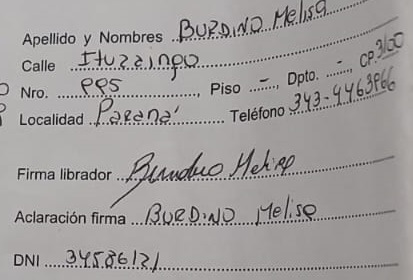 Apellido y Nombres BURDINO Melisa
Calle Ituzaingo
Nro. 995, Piso -, Dpto. -, CP.3100
Localidad Parana' Teléfono 343-4463966
Firma librador Burdino Melisa
Aclaración firma BURDINO Melisa
DNI 34586121